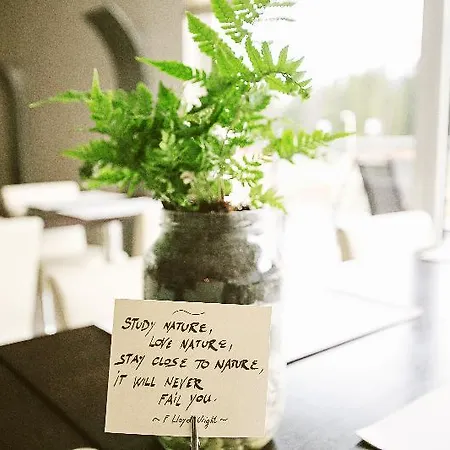 STUDY NATURE,
LOVE NATURE,
STAY CLOSE TO NATURE,
IT WILL NEVER
FAIL YOU.
~ F Lloyd Wright ~